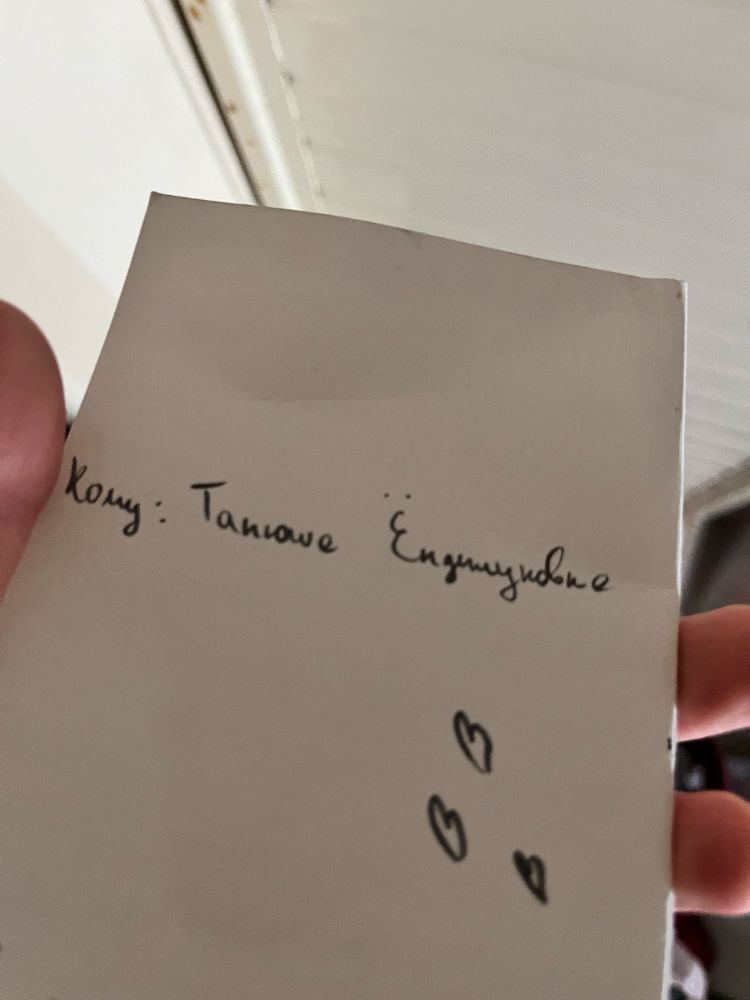 Кому: Танюше Ёндишуновне